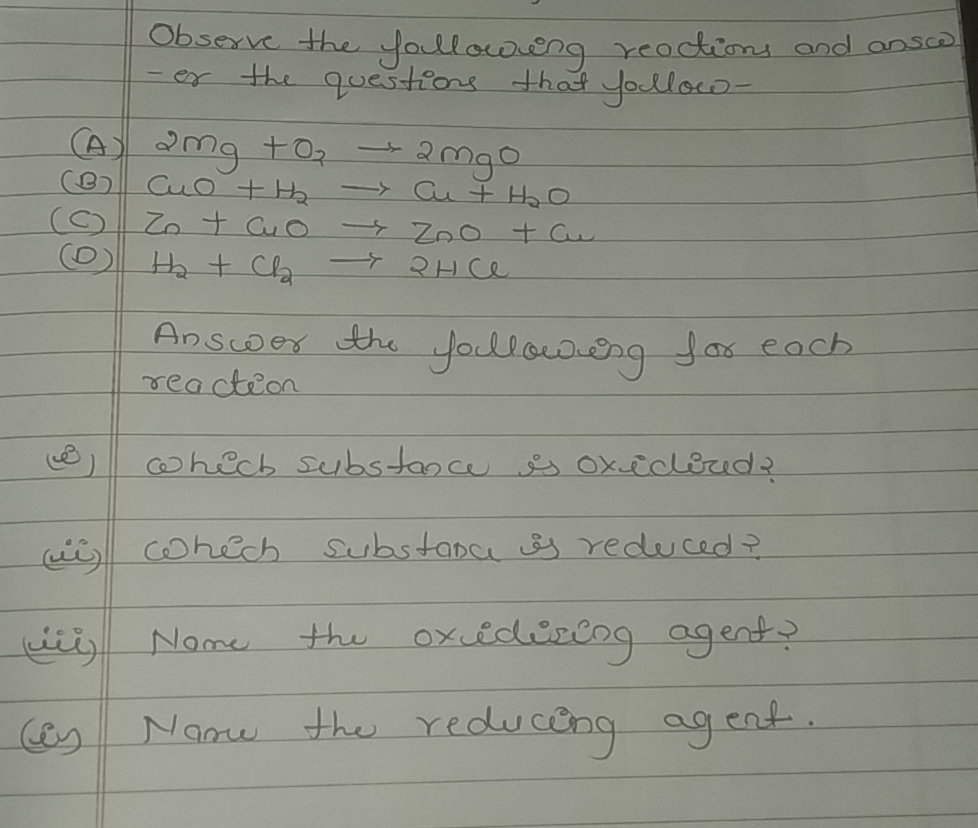 Observe the following reactions and answ
-er the questions that follow-
(A) 2mg + O₂ → 2mgO
(B) CuO + H₂ → Cu + H₂O
(C) Zn + CuO → ZnO + Cu
(D) H₂ + Cl₂ → 2HCl
Answer the following for each
reaction
(i) which substance is oxidized?
(ii) which substance is reduced?
(iii) Name the oxidising agent?
(iv) Name the reducing agent.